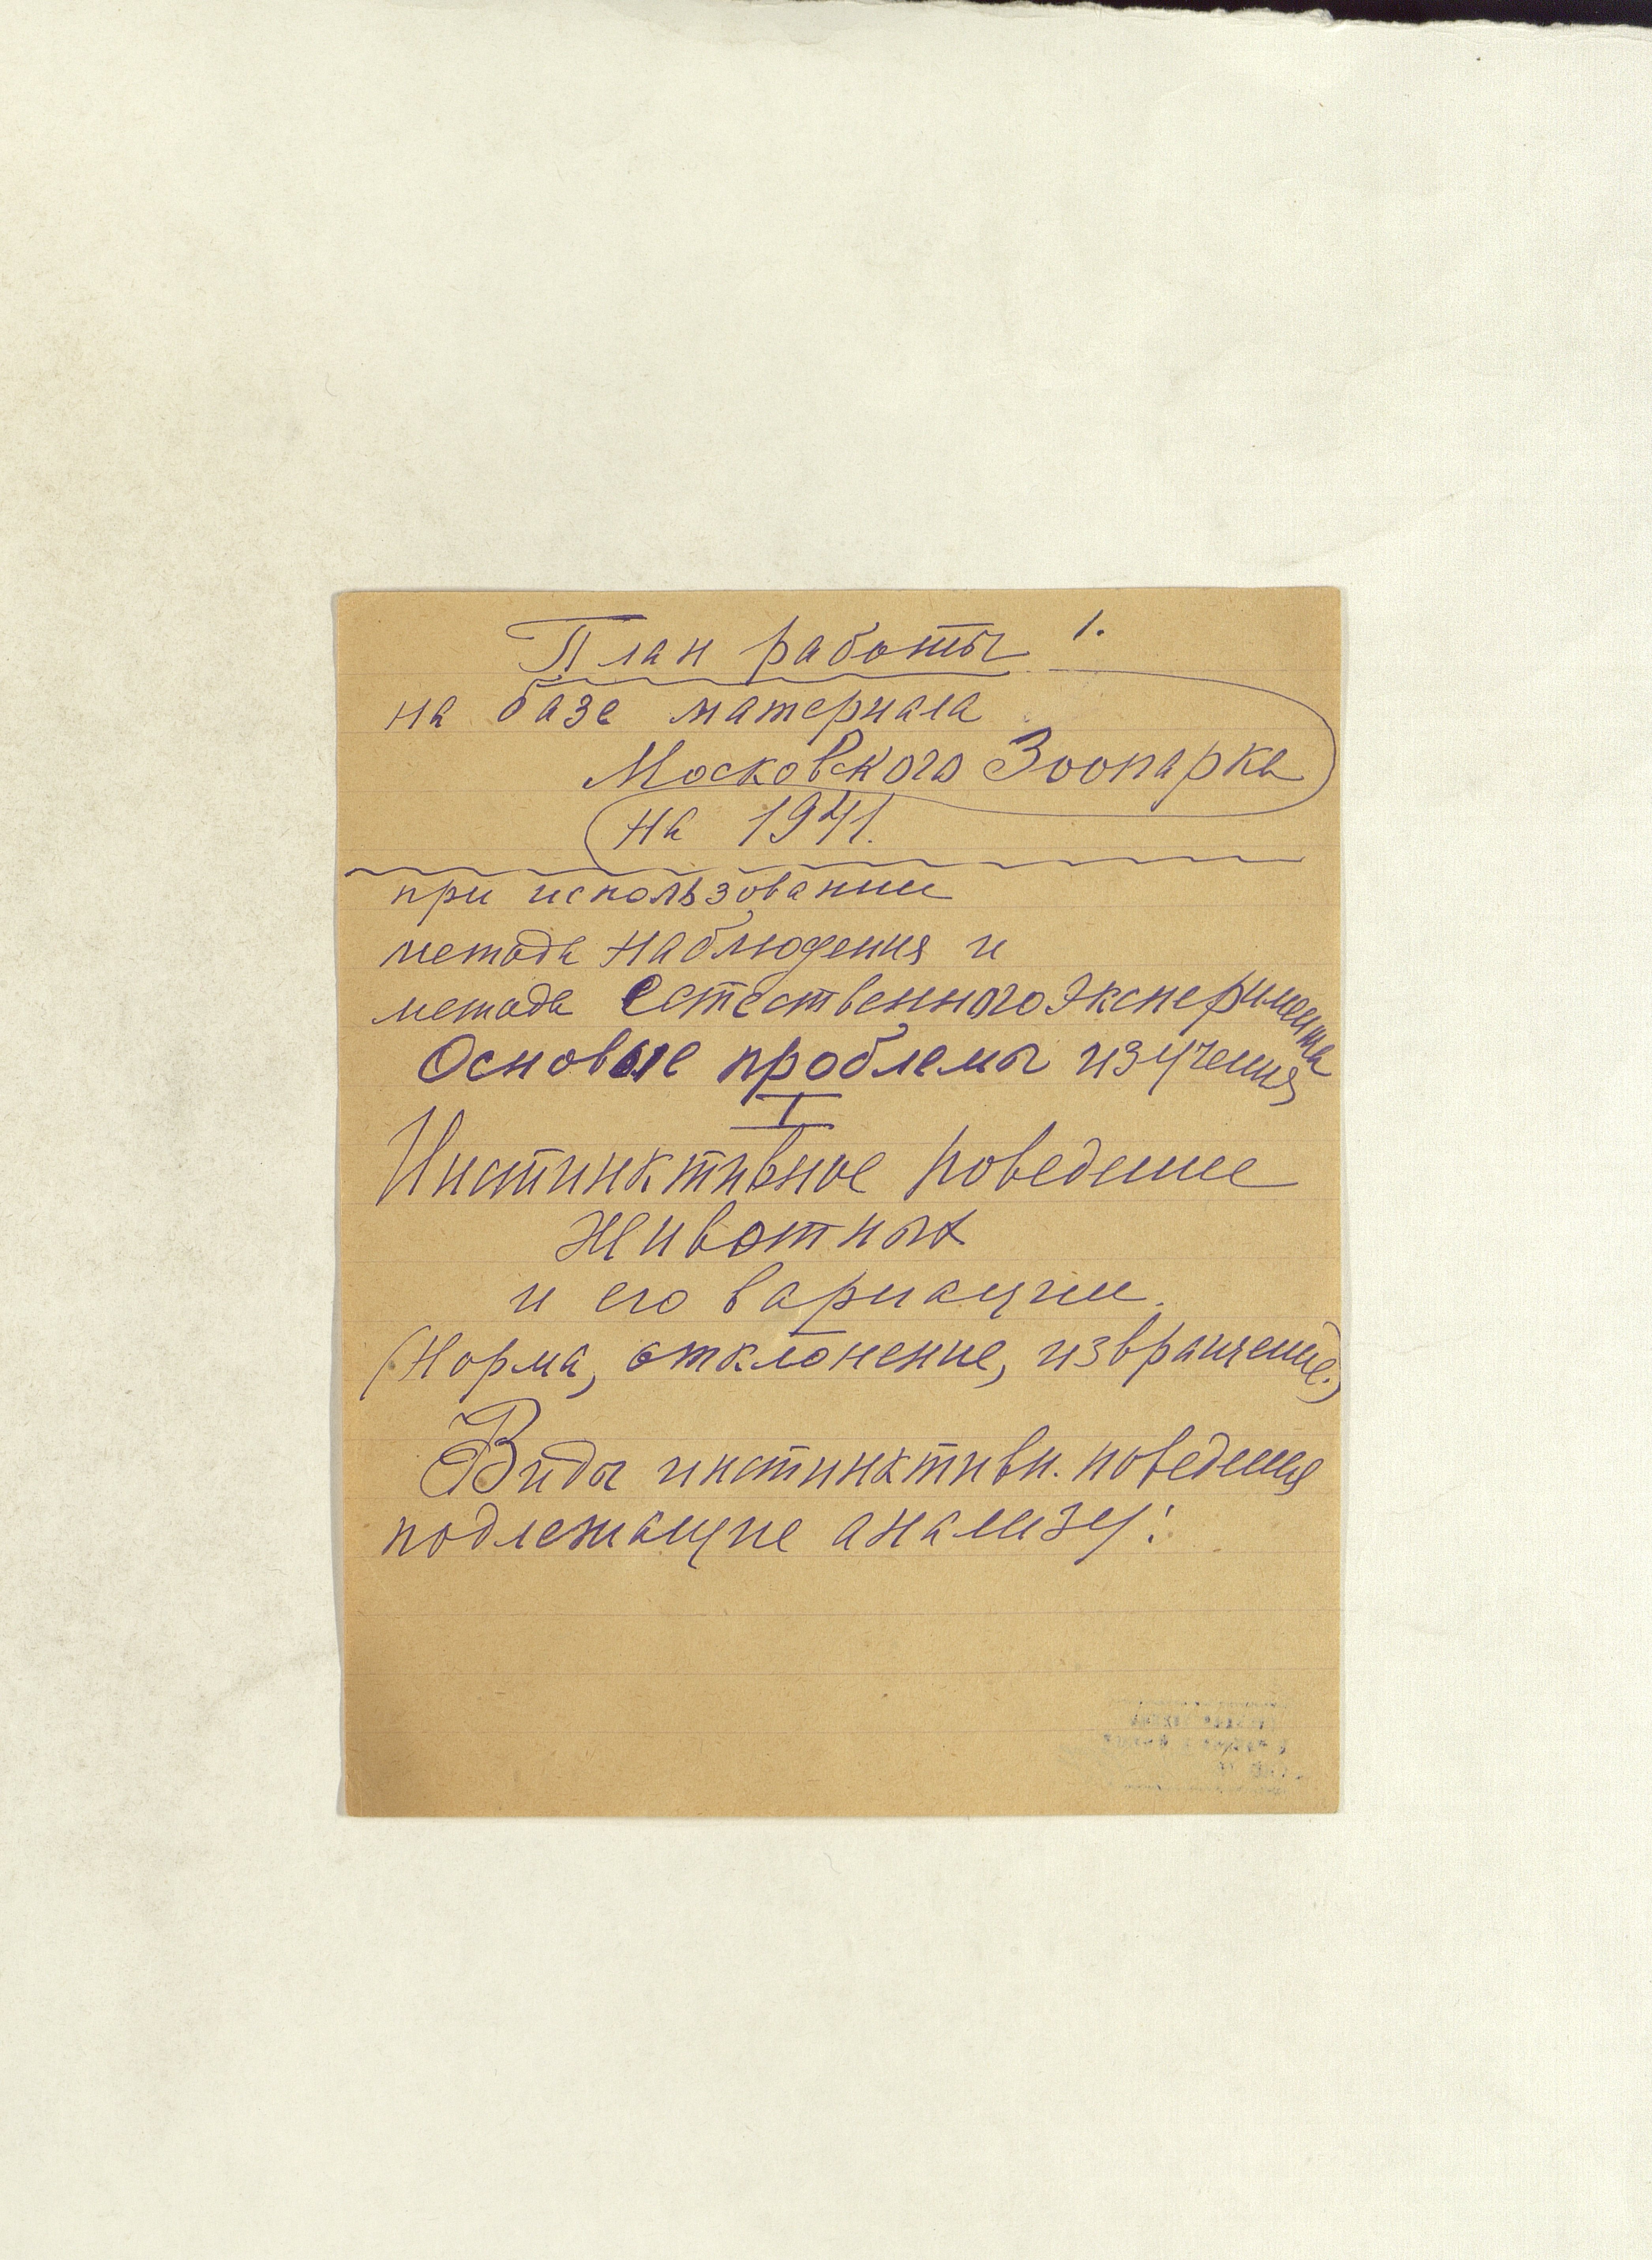 План работы 1.
на базе материала
Московского Зоопарка
на 1941.
при использовании
метода наблюдения и
метода естественного эксперимента
Основые проблемы изучения
I
Инстинктивное поведение
животных
и его вариации.
(Норма, отклонение, извращение.)
Виды инстинктивн. поведения
подлежащие анализу: